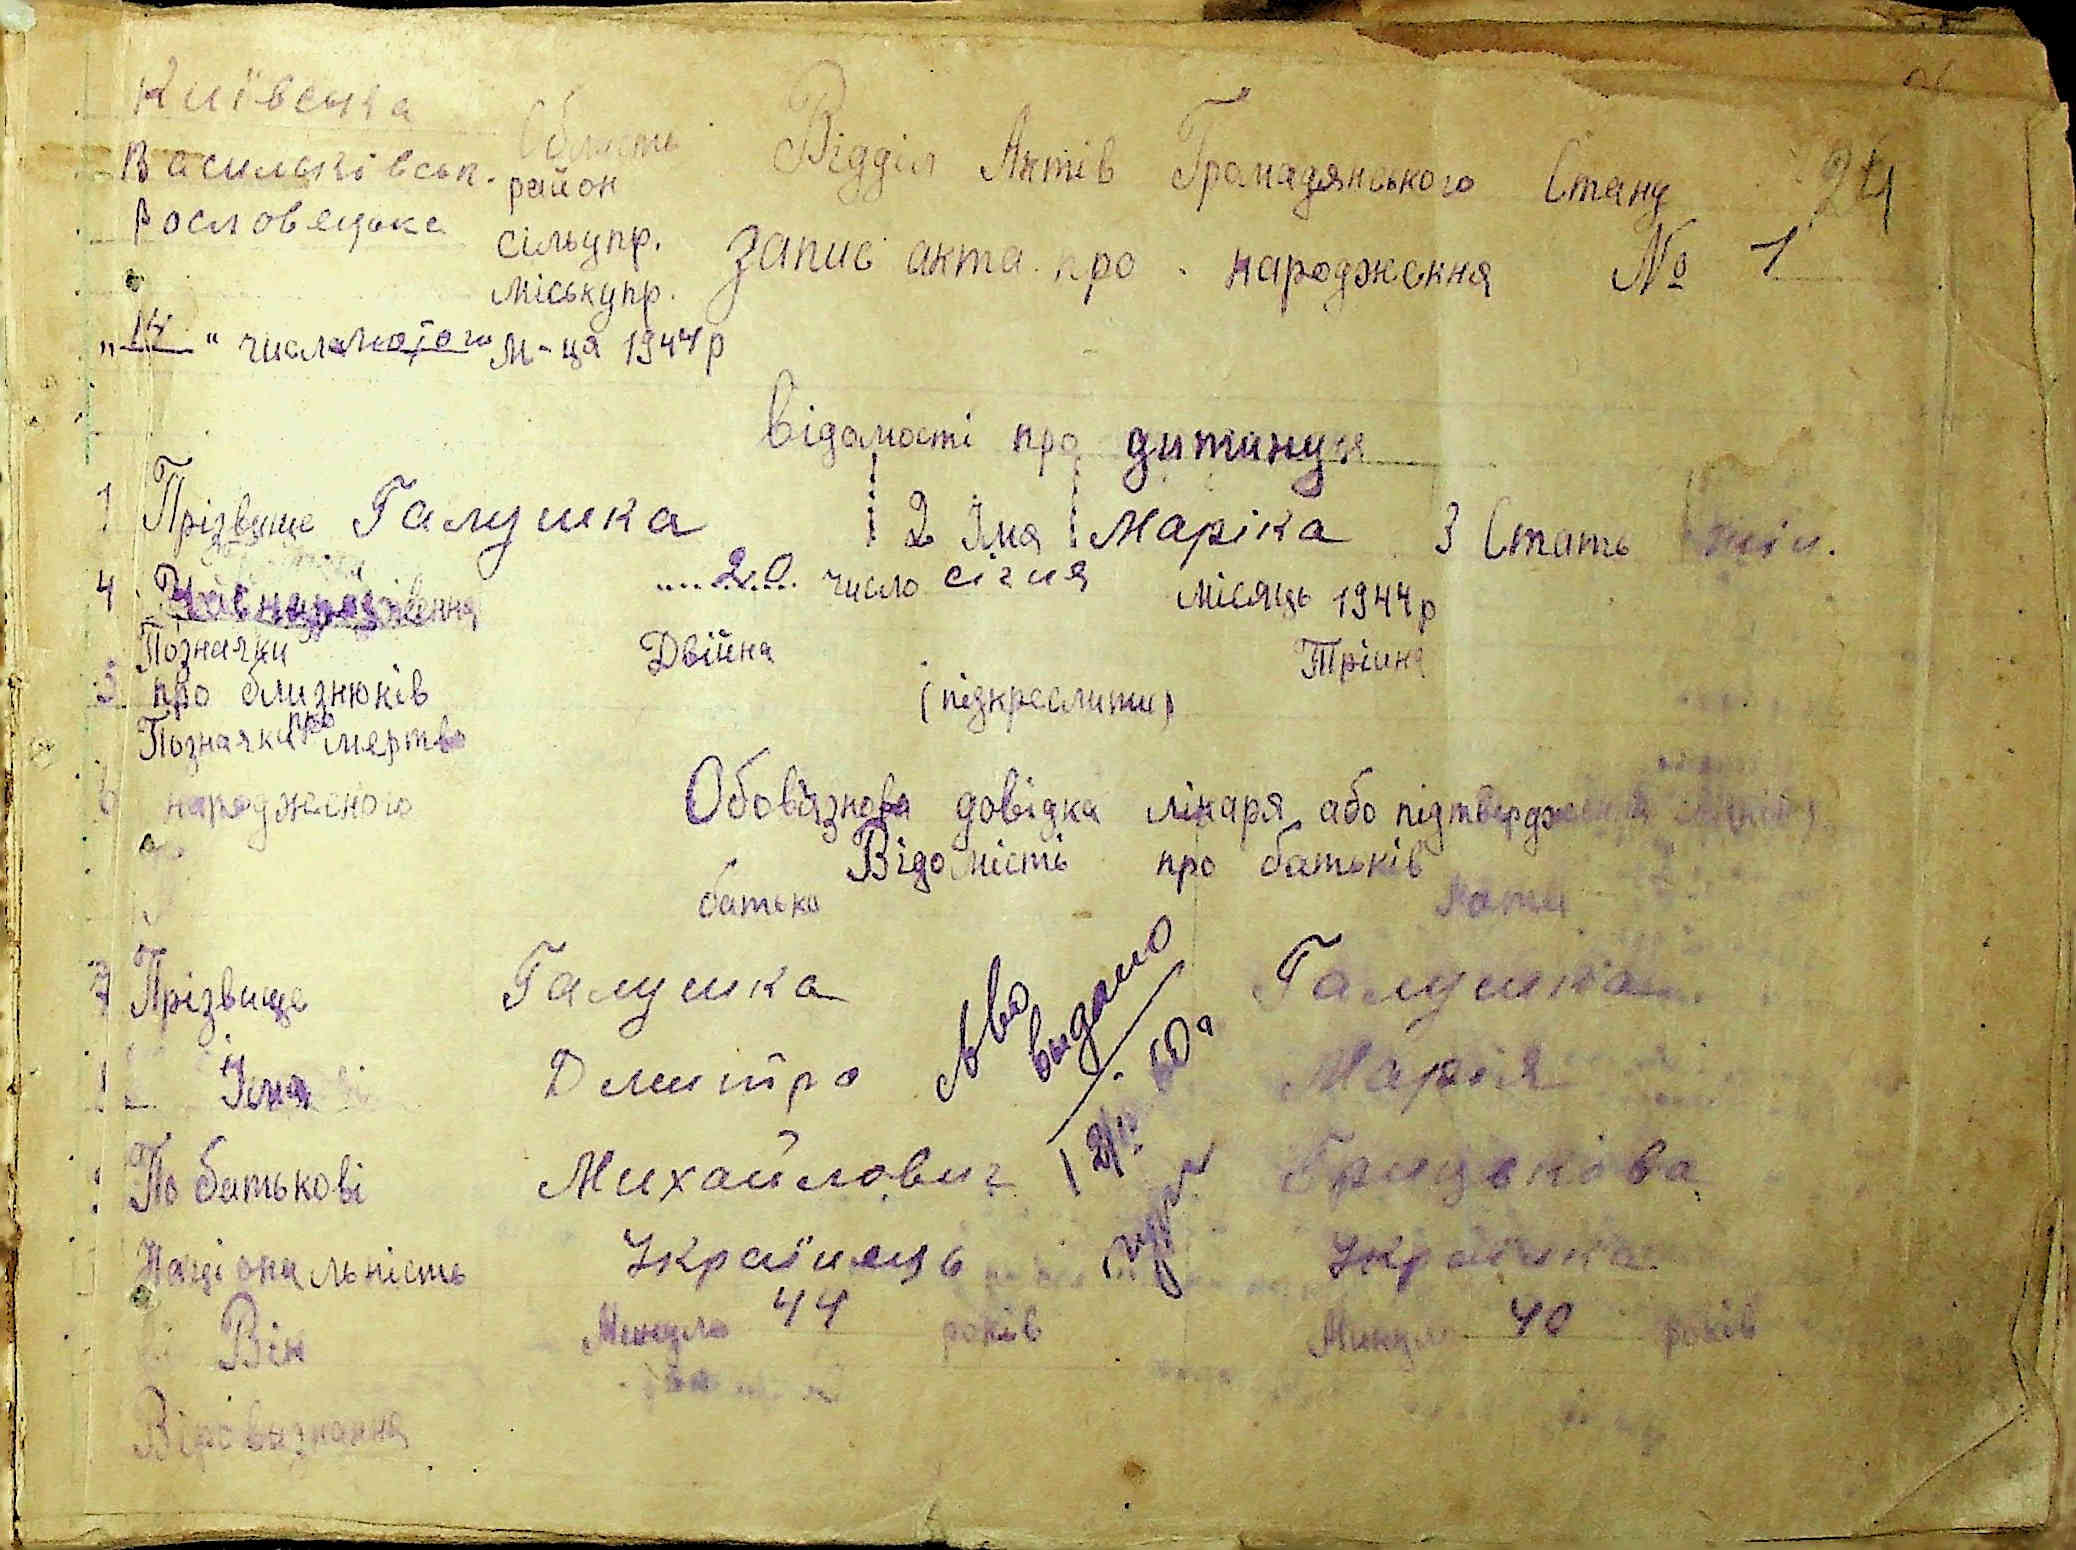 Київська Область Відділ Актів Громадянського Стану 24
Васильківськ. район
Рословецька сільупр. Запис акта про народження № 1
міськупр.
„14“ числа лютого м-ця 1944р
Відомості про дитину
1 Прізвище Галушка 2 Імя Маріка 3 Стать жін.
4 Час народження 20 число січня місяць 1944р
Позначки Двійна Трійня
5 про близнюків (підкреслити)
Позначки про мертво
6 народженого Обовязкова довідка лікаря або підтвердження
Відомість про батьків
батько мати
7 Прізвище Галушка Галушка
Імя Дмитро Марія
По батькові Михайлович Грицькова
Національність Українець Українка
Він Минуло 44 років Минуло 40 років
Віровизнання
выдано